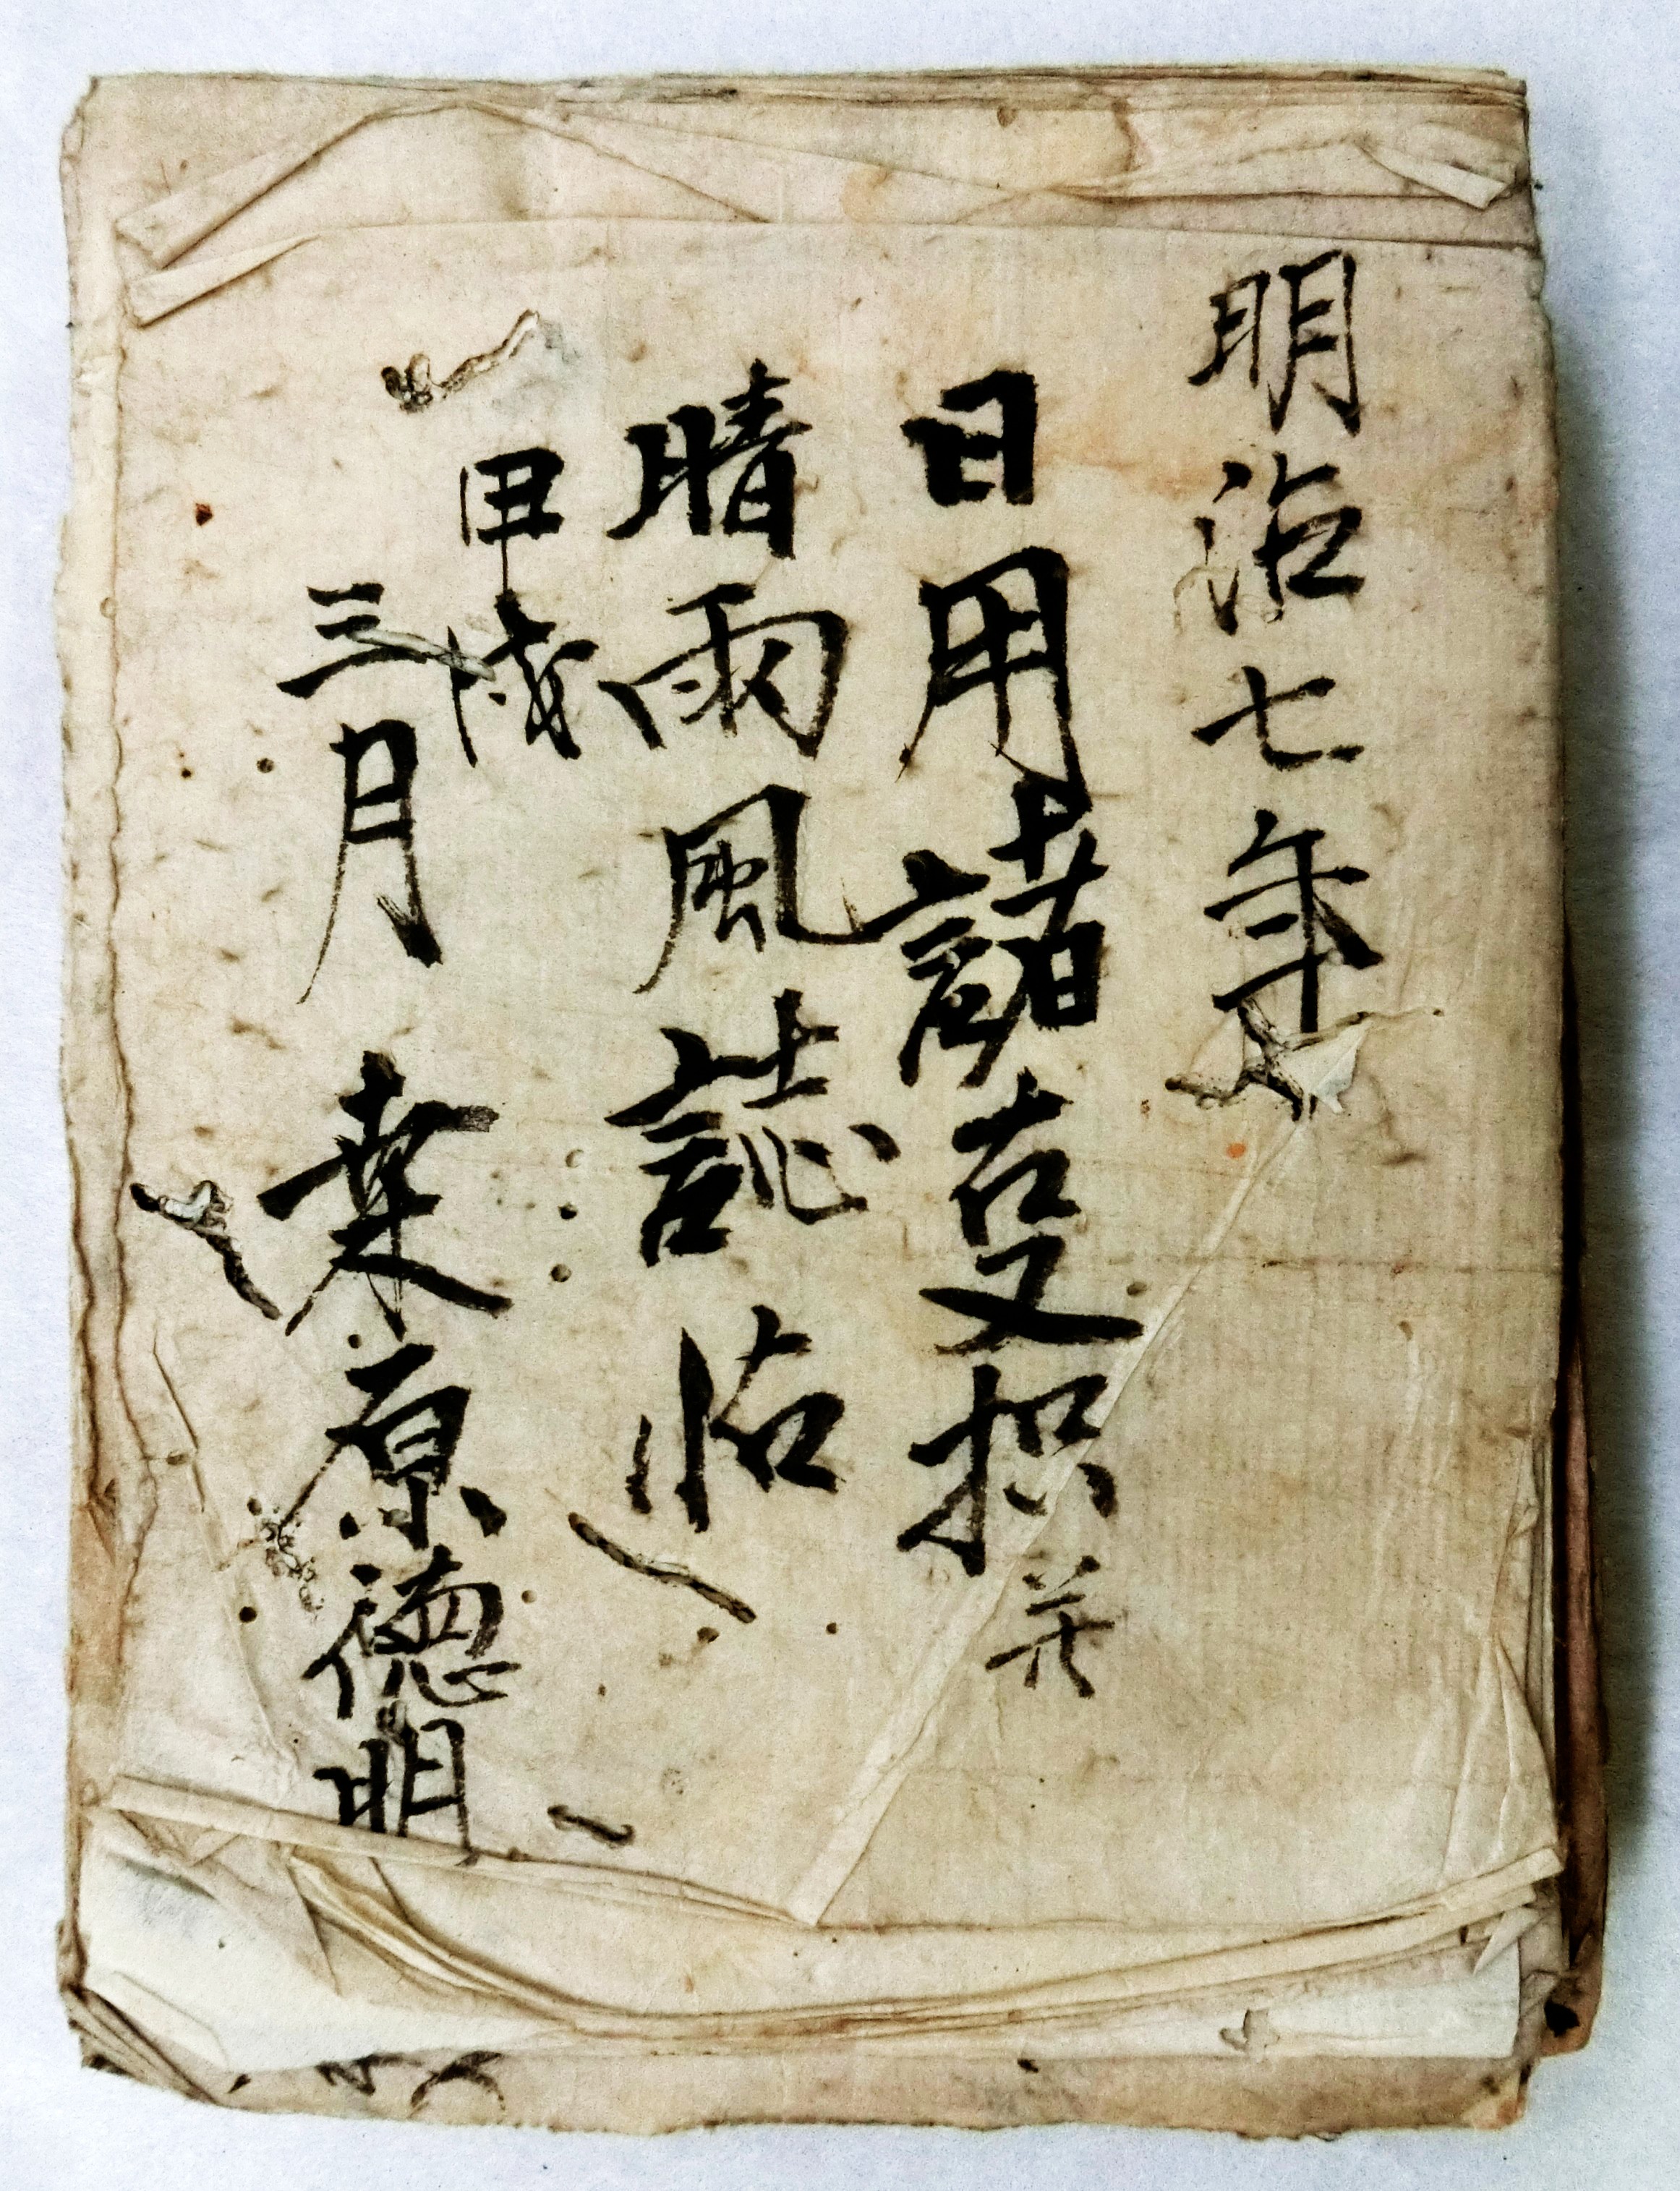 明治七年
日用諸叓扣并
晴雨風誌帖
甲戌
三月 桒原徳明